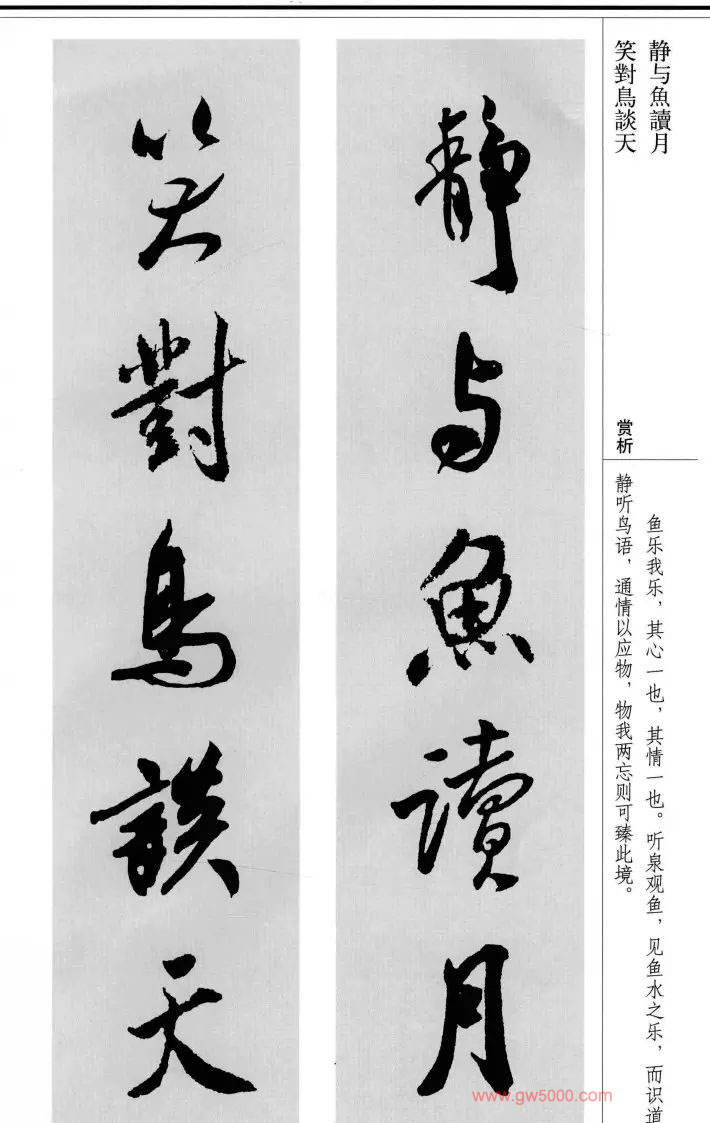 静与魚讀月
笑對鳥談天
赏析
鱼乐我乐，其心一也，其情一也。听泉观鱼，见鱼水之乐，而识道
静听鸟语，通情以应物，物我两忘则可臻此境。
静与魚讀月
笑對鳥談天
www.gw5000.com